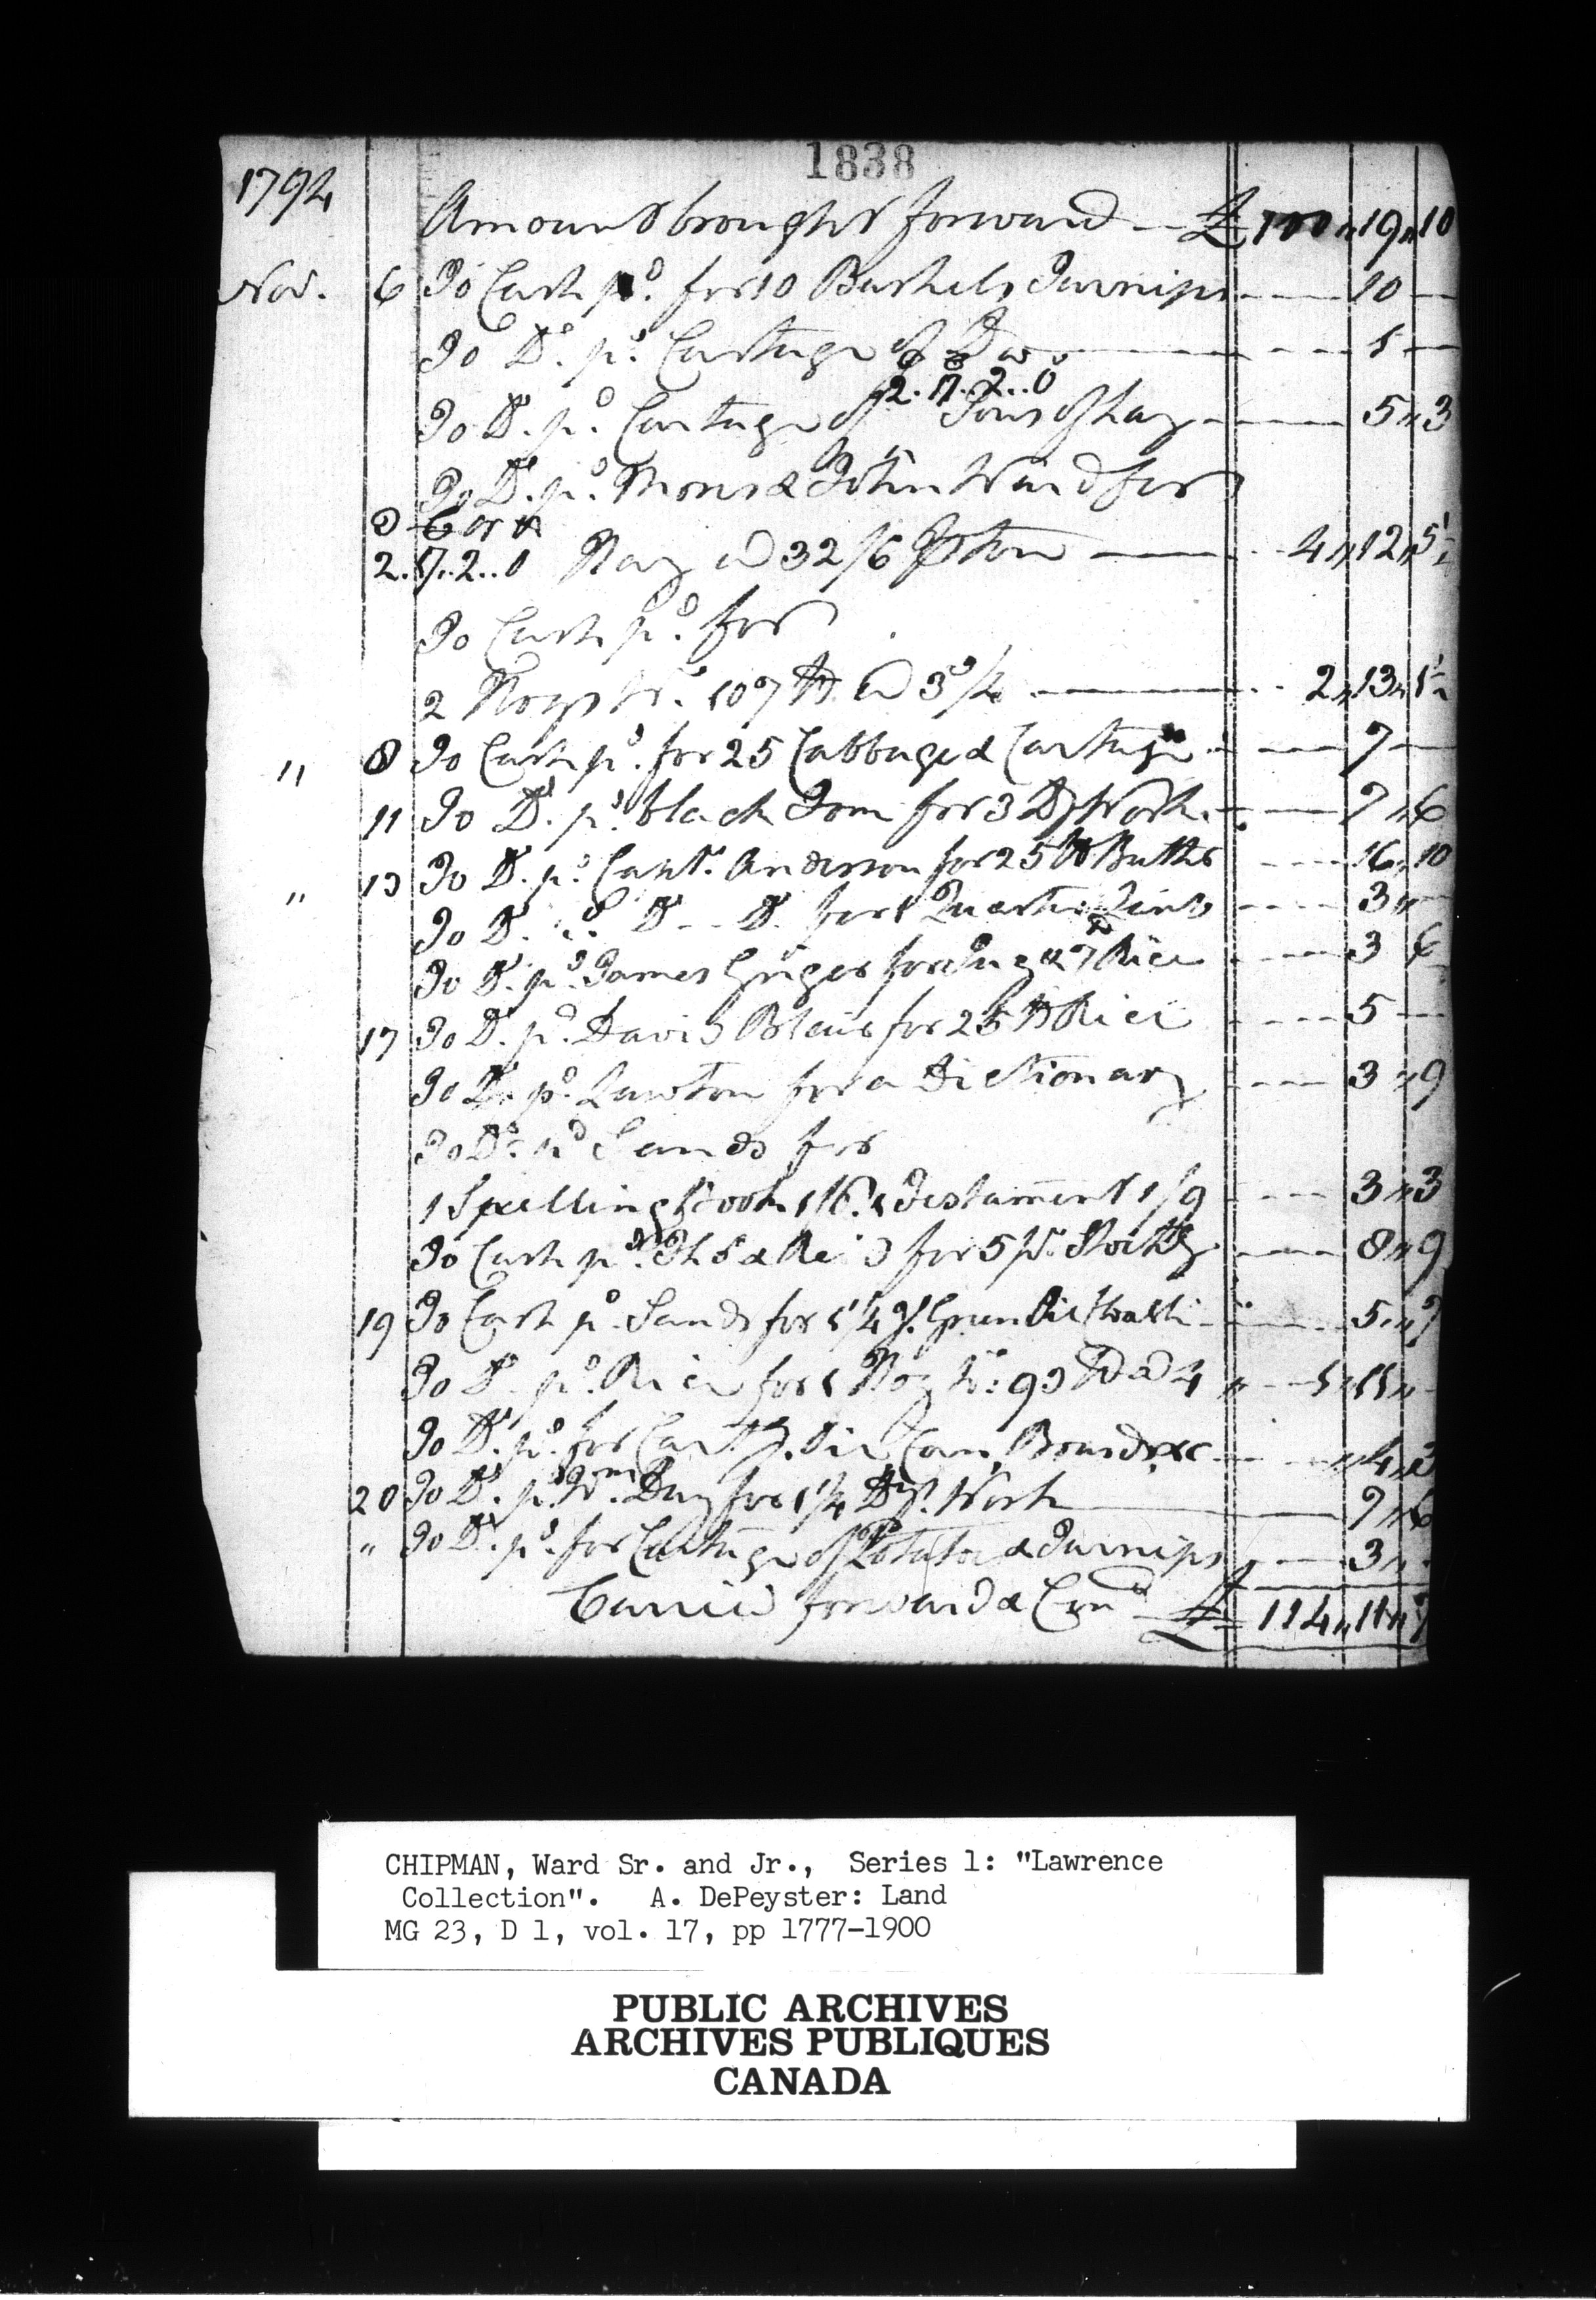 1838
1794
Amount brought forward — £100 " 19 " 10
Nov. 6 To Cash pd. for 10 Bushels Turnips — 10 —
To Do. pd. Cartage of Do — 1 —
2.17.2..0
To Do. pd. Cartage of Tons of hay — 5 " 3
To Do. pd. Thomas & John Ward for
2.17..2..0 Hay @ 32/6 P Ton — 4 " 12 " 5½
To Cash pd. for
2 Hogs Wt. 107 lb @ 3¾ — 2 " 13 " 1½
" 8 To Cash pd. for 25 Cabbage & Cartage — 7 —
11 To Do. pd. black Tom for 3 Ds Work — 7 " 6
" 13 To Do. pd. Capt. Anderson for 25 lb Butter — 16 " 10
To Do. Do. Do. for 1 Quarter — 3 "
To Do. pd. James for & 7 lb Rice — 3 6
17 To Do. pd. David Blair for 25 lb Rice — 5 —
To Do. pd. Lawton for a Dictionary — 3 " 9
To Do. pd Sands for
1 Spelling Book 1/6. 1 Testament 1/9 — 3 " 3
To Cash pd. & Reid for 5 pr. — 8 " 9
19 To Cash pd. Sands for 1¼ y. Green — 5 " 7
To Do. pd. Rice for 1 Hog Wt. 93 lb @ 4 — 1 " 11 "
To Do. pd. for Boards &c — 4 " 3
20 To Do. pd. Wm. Day for 1¼ Dys. Work — 7 " 6
" To Do. pd. for Cartage of Potatoes & Turnips — 3 "
Carried forward & Cond £ 114 " 11 " 7
CHIPMAN, Ward Sr. and Jr., Series 1: "Lawrence
Collection". A. DePeyster: Land
MG 23, D 1, vol. 17, pp 1777-1900
PUBLIC ARCHIVES
ARCHIVES PUBLIQUES
CANADA